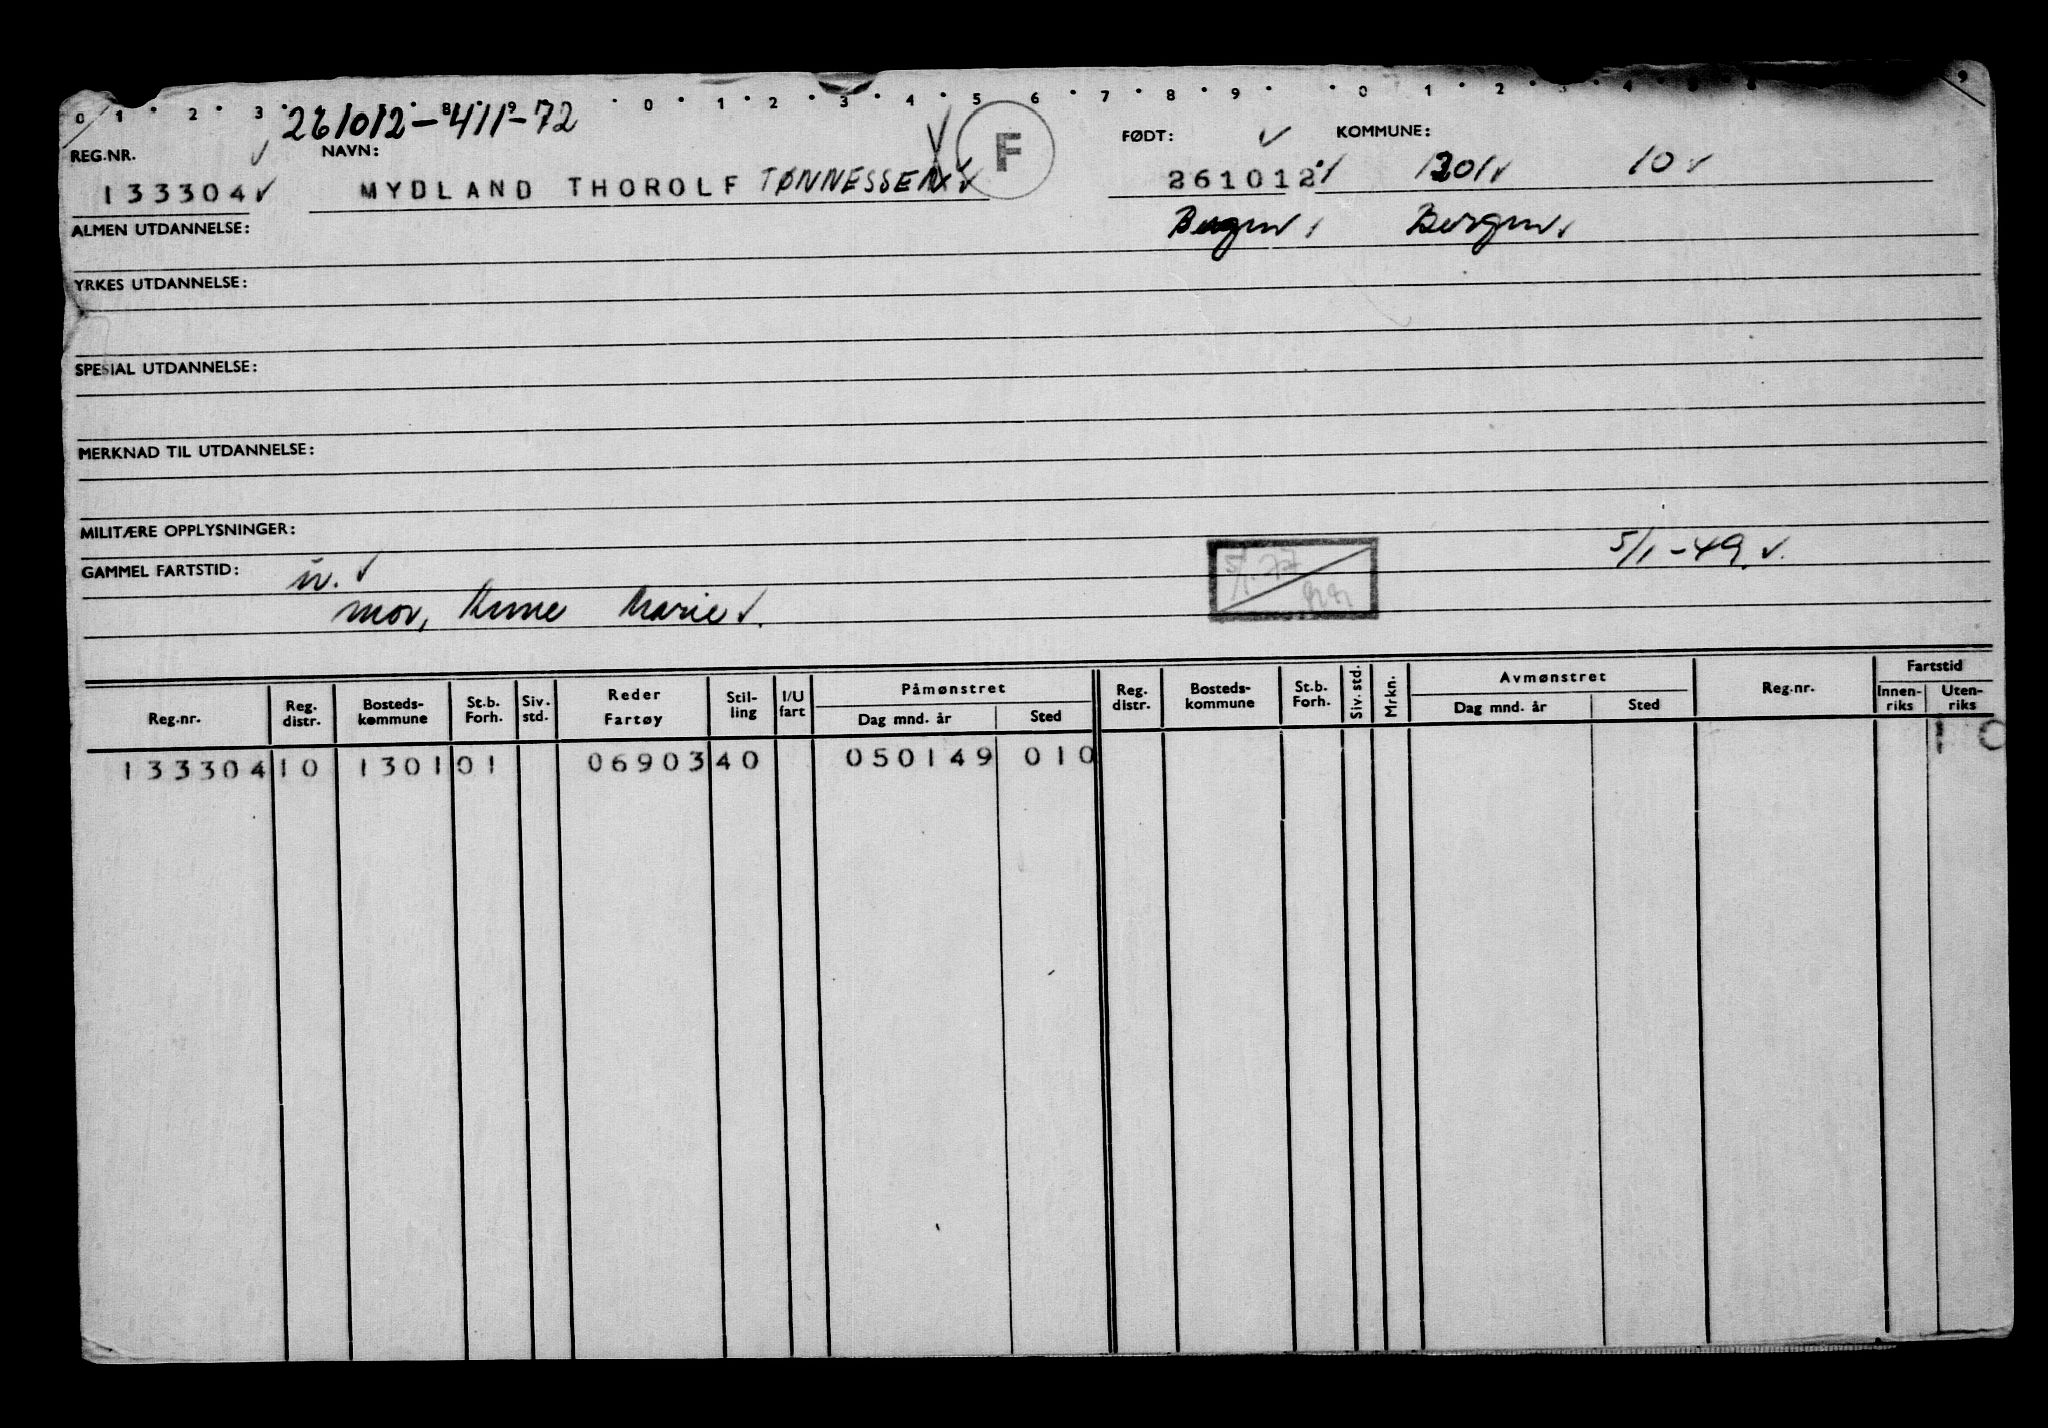 0 1 2 3 8 9 0 1 2 3 4 5 6 7 8 9 0 1 2 3 4 5 9
261012-411-72
REG.NR. NAVN: F FØDT: KOMMUNE:
133304 MYDLAND THOROLF TØNNESSEN 261012 1301 10
ALMEN UTDANNELSE: Bergen Bergen
YRKES UTDANNELSE:
SPESIAL UTDANNELSE:
MERKNAD TIL UTDANNELSE:
MILITÆRE OPPLYSNINGER:
GAMMEL FARTSTID: 5/1-77 5/1-49
mor, Anne Marie
Reg.nr. Reg. distr. Bosteds-kommune St.b. Forh. Siv. std. Reder Fartøy Stil-ling I/U fart Påmønstret Dag mnd. år Sted Reg. distr. Bosteds-kommune St.b. Forh. Siv. std. Mrkn. Avmønstret Dag mnd. år Sted Reg.nr. Fartstid Innen-riks Uten-riks
133304 10 1301 01 06903 40 050149 010 10